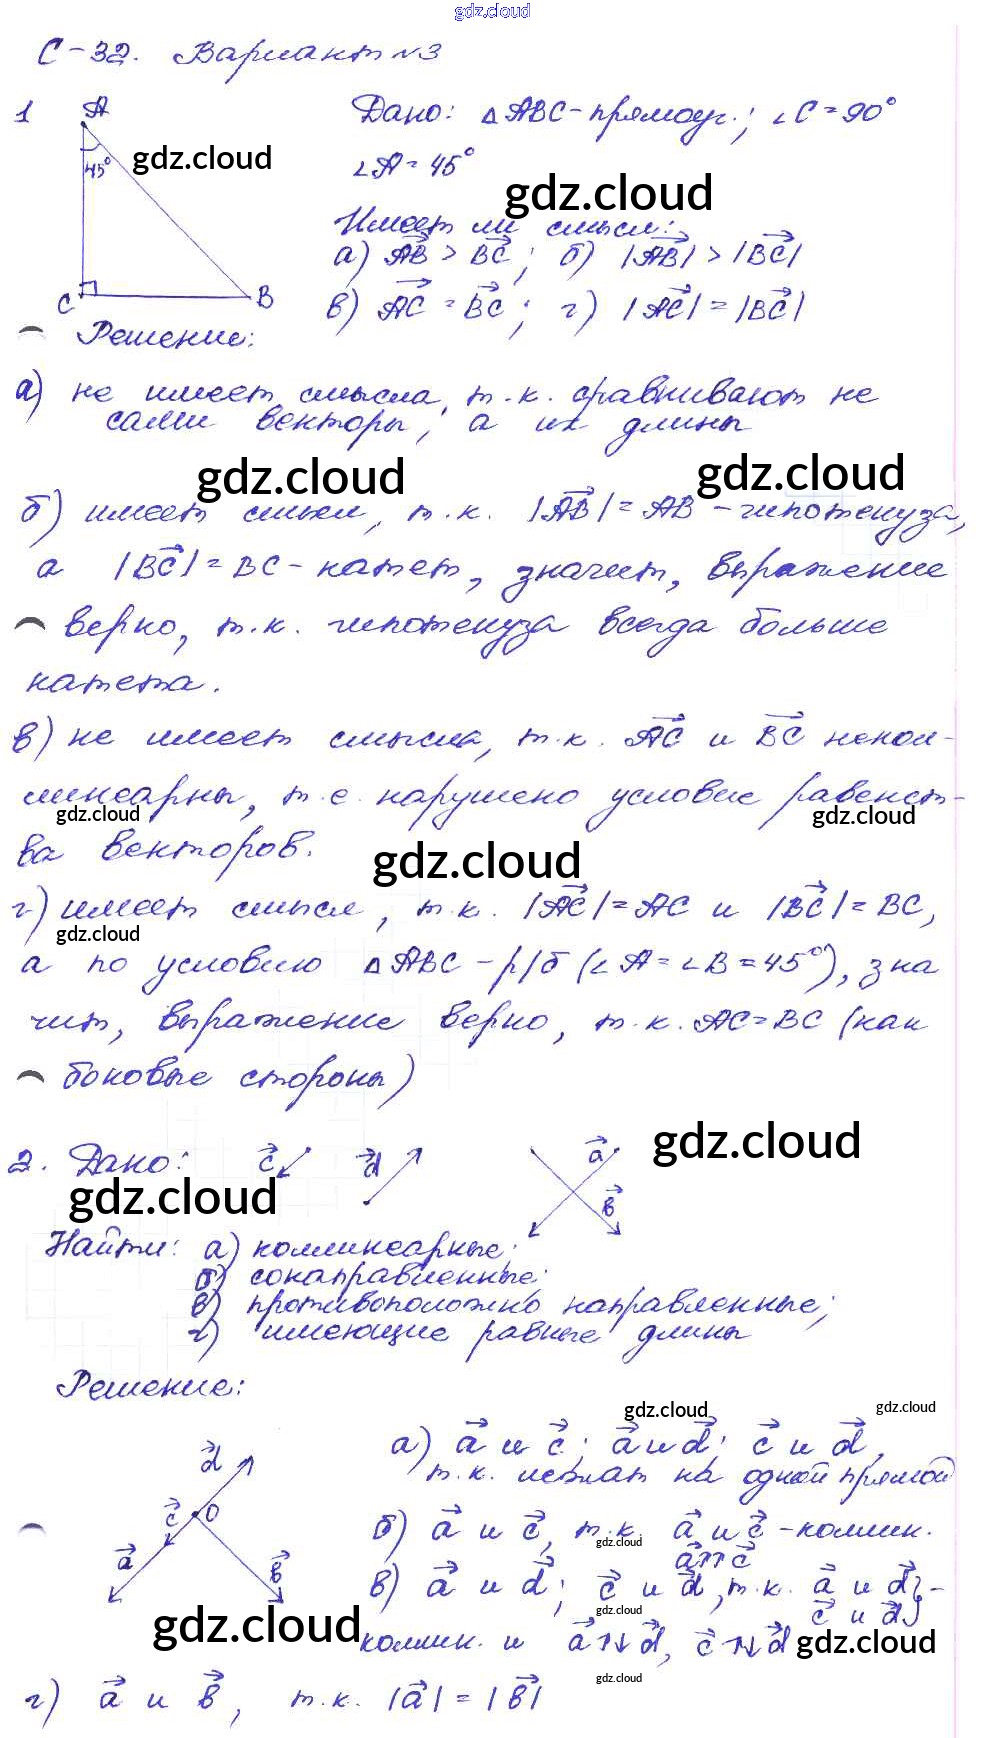 gdz.cloud
С-32. Вариант №3
1 A Дано: △ABC-прямоуг.; ∠C=90°
45° gdz.cloud ∠A=45°
gdz.cloud
Имеет ли смысл:
а) AB > BC; б) |AB| > |BC|
C B в) AC = BC; г) |AC| = |BC|
Решение:
а) не имеет смысла, т.к. сравнивают не
сами векторы, а их длины
gdz.cloud gdz.cloud
б) имеет смысл, т.к. |AB|=AB-гипотенуза,
а |BC|=BC-катет, значит, выражение
верно, т.к. гипотенуза всегда больше
катета.
в) не имеет смысла, т.к. AC и BC некол-
линеарны, т.е. нарушено условие равенст-
gdz.cloud gdz.cloud
ва векторов. gdz.cloud
г) имеет смысл, т.к. |AC|=AC и |BC|=BC,
gdz.cloud
а по условию △ABC-р/б (∠A=∠B=45°), зна
чит, выражение верно, т.к. AC=BC (как
боковые стороны)
2. Дано: c d a b gdz.cloud
gdz.cloud
Найти: а) коллинеарные;
б) сонаправленные;
в) противоположно направленные;
г) имеющие равные длины
Решение:
gdz.cloud gdz.cloud
d c O a b
а) a и c; a и d; c и d,
т.к. лежат на одной прямой
б) a и c, т.к. a и c -коллин.
gdz.cloud a↑↑c
в) a и d; c и d, т.к. a и d}-
gdz.cloud c и d}
gdz.cloud коллин. и a↑↓d, c↑↓d gdz.cloud
gdz.cloud
г) a и b, т.к. |a|=|b|